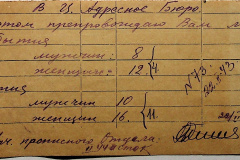 В ЦЗ. Адресное Бюро.
этом препровождаю Вам
бытия
мужчин: 8
женщин: 12
4.
№ 73
22.II.43
тия
мужчин 10
женщин 16.
11.
нач. прописного Стола
участок